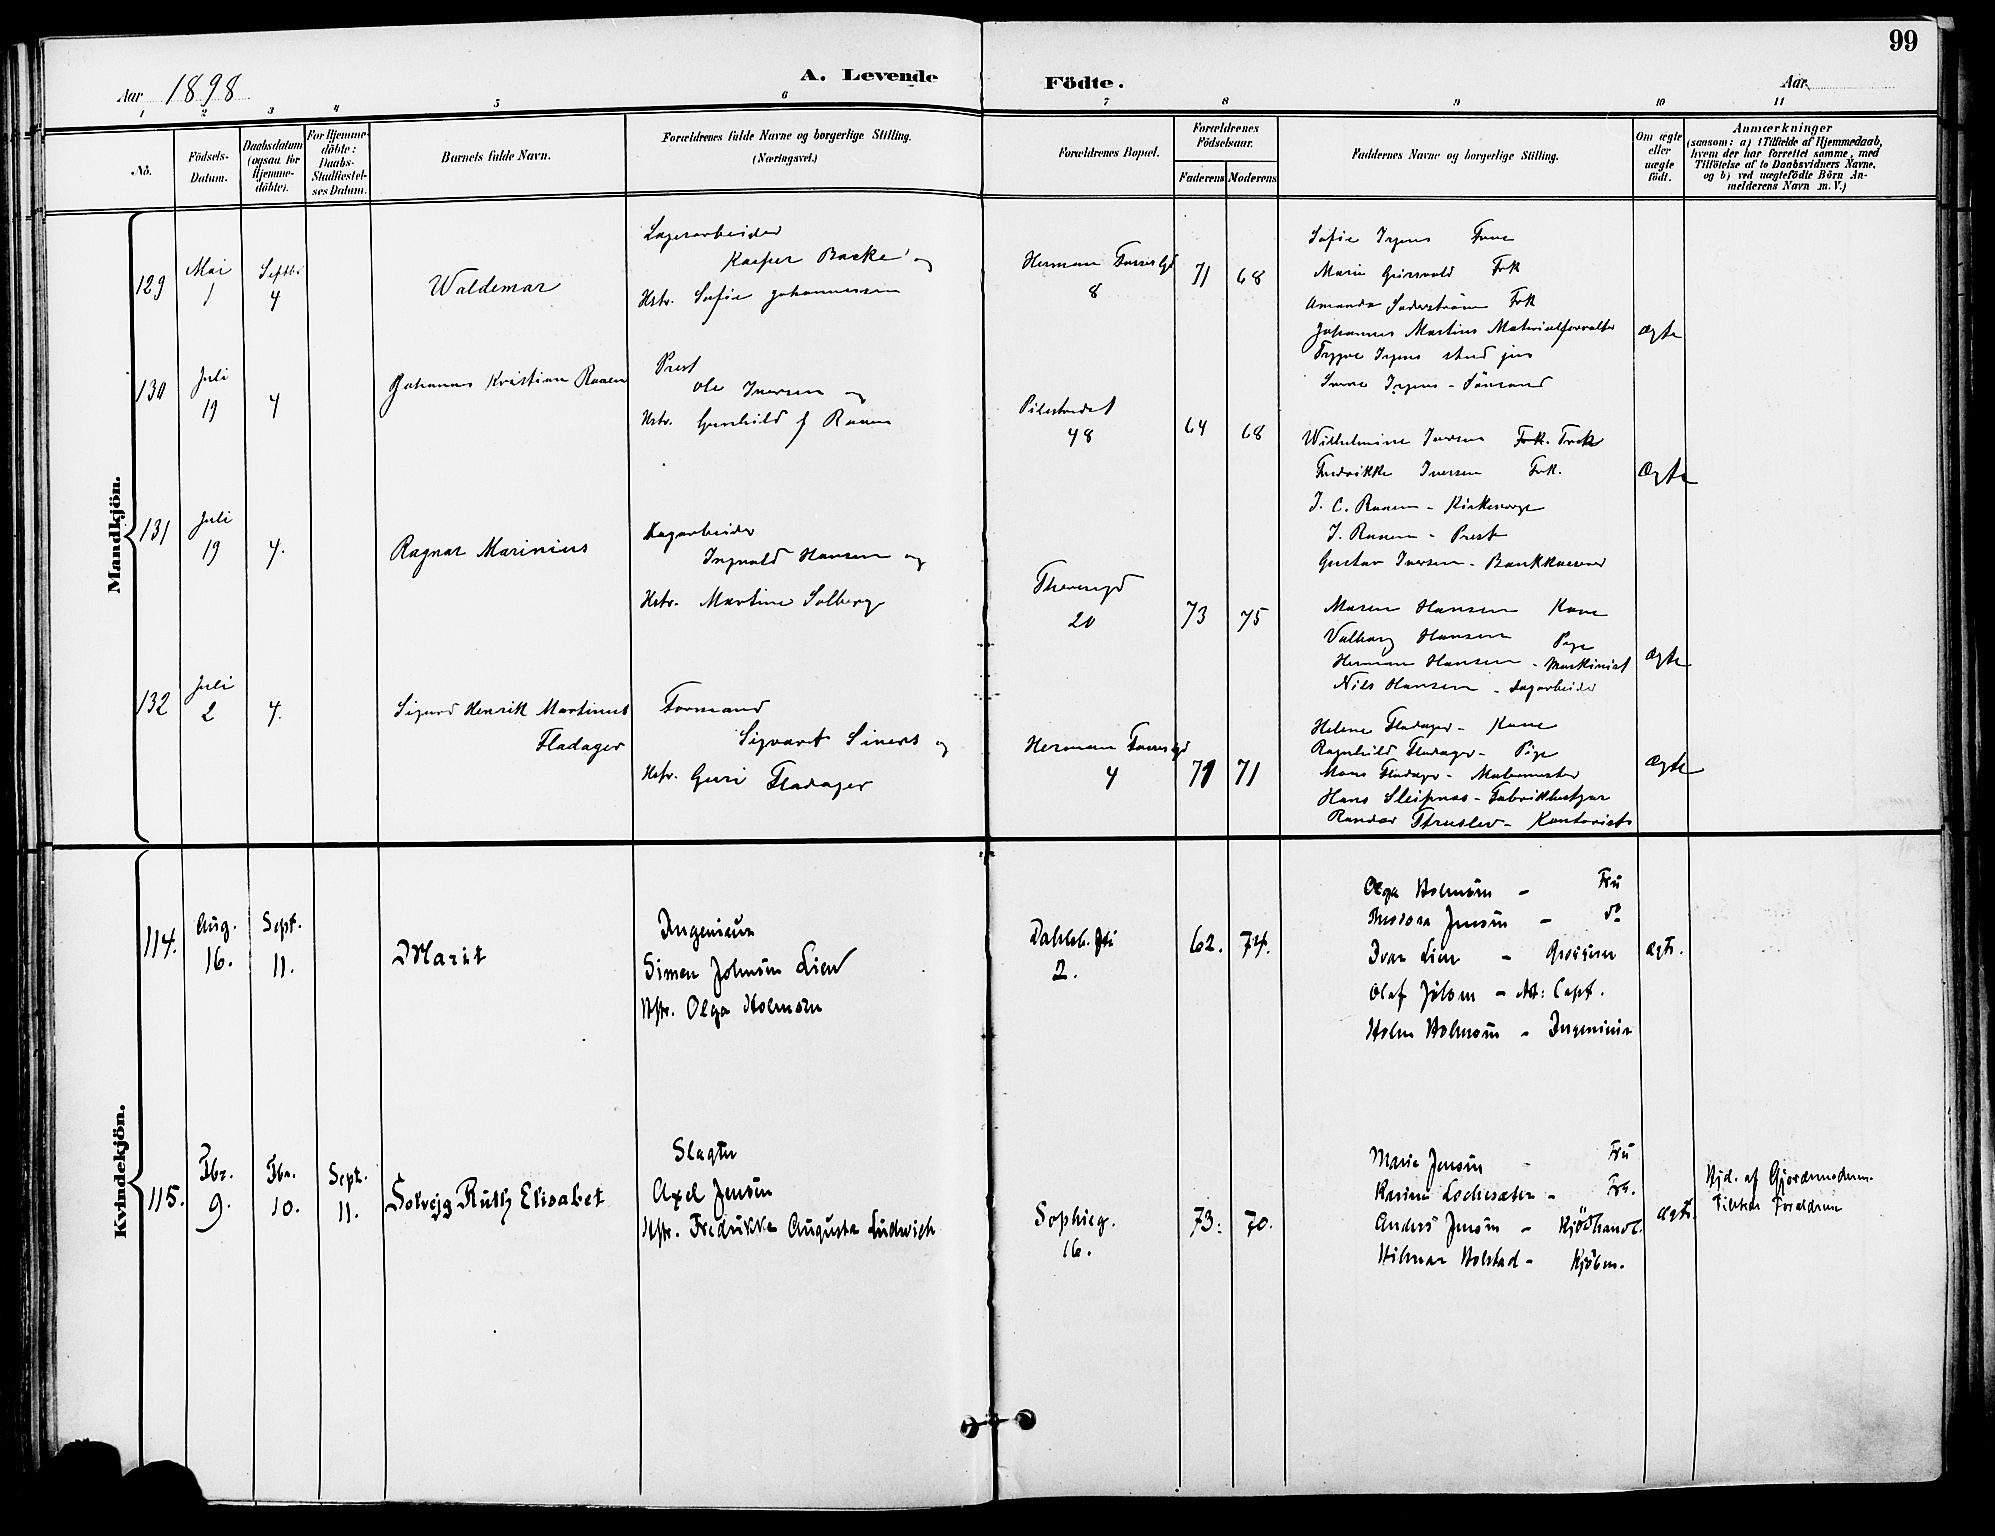 99
Aar 1898
A. Levende Födte.
Aar
1 2 3 4 5 6 7 8 9 10 11
No.
Födsels-
Datum.
Daabsdatum
(ogsaa for
Hjemme-
döbte).
For Hjemme-
döbte:
Daabs-
Stadfæstel-
ses Datum.
Barnets fulde Navn.
Forældrenes fulde Navne og borgerlige Stilling.
(Næringsvei.)
Forældrenes Bopæl.
Forældrenes
Födselsaar.
Faderens Moderens
Faddernes Navne og borgerlige Stilling.
Om ægte
eller
uægte
födt.
Anmærkninger
(saasom: a) i Tilfælde af Hjemmedaab,
hvem der har forrettet samme, med
Tilföielse af to Daabsvidners Navne,
og b) ved uægtefödte Börn An-
melderens Navn m. V.)
Mandkjön.
129
Mai
1
Septbr
4
Waldemar
Lagerarbeider
Kasper Backe og
Hstr. Sofie Johannessen
Herman Fossesgd
8
71
68
Sofie Irgens Frue
Marie Grünwald Frk
Amanda Søderstrøm Frk
Johannes Martins Materialforvalter
Trygve Irgens stud jur
Irgens - Sømand
ægte
130
Juli
19
4
Johannes Kristian Raaen
Prest
Ole Iversen og
Hstr. Gunhild f Raaen
Pilestrædet
48
64
68
Wilhelmine Iversen Frk. Frk
Fredrikke Iversen Frk.
J. C. Raaen - Kirkesanger
J. Raaen - Prest
Gustav Iversen - Bankkasserer
Ægte
131
Juli
19
4.
Ragnar Marinius
Sagarbeider
Ingvald Hansen og
Hstr. Martine Solberg
Thorsgd
20
73
75
Maren Hansen Kone
Valborg Hansen Pige
Herman Hansen - Maskinist
Nils Hansen - Sagarbeider
Ægte
132
Juli
2
4.
Sigurd Henrik Martinus
Fladager
Formand
Sigvart Sivers og
Hstr. Guri Fladager
Herman Fossesgd
4
71
71
Helene Fladager - Kone
Ragnhild Fladager - Pige
Mons Fladager - Malermester
Hans Sleipnes - Fabrikbestyrer
- Kontorist
Ægte
Kvindekjön.
114.
Aug.
16.
Sept.
11.
Marit
Ingeniør
Simen Johnsen Lien
Hstr. Olga Holmsen
Dahlsb.
2.
62.
74.
Olga Holmsen - Fru
Theodora Jensen - do
Ivar Lien - Grosserer
Olaf - Capt.
Holm Holmsen - Ingeniør
ægte.
115.
Fbr.
9.
Fbr.
10.
Sept.
11.
Solvejg Ruth Elisabet
Slagter
Axel Jensen
Hstr. Fredrikke Augusta Ludwich
Sophieg.
16.
73.
70.
Marie Jensen - Fru
Karine Lochesæter - Frk.
Anders Jensen - Kjødhandl.
Hilmar Holstad - Kjøbm.
ægte.
Hjd. af Gjordemoderen.
Tilstede Forældrene